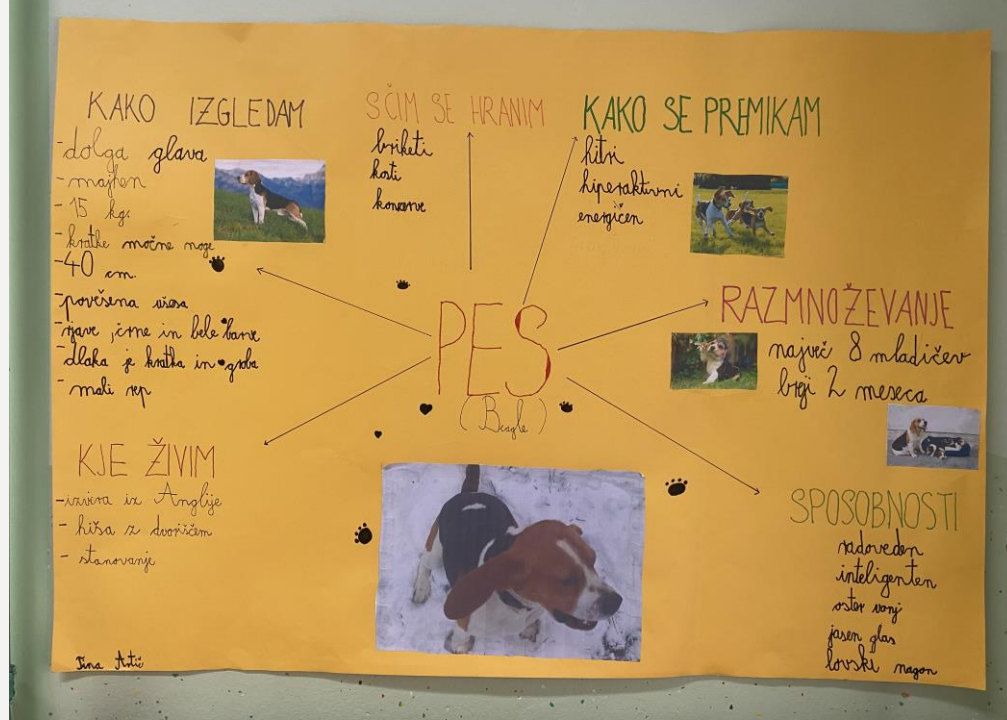 KAKO IZGLEDAM
-dolga glava
-majhen
-15 kg.
-kratke močne noge
-40 cm.
-povešena ušesa
-rjave, črne in bele barve
-dlaka je kratka in groba
-mali rep
S ČIM SE HRANIM
briketi
kosti
konzerve
KAKO SE PREMIKAM
hitri
hiperaktivni
energičen
PES
(Beagle)
RAZMNOŽEVANJE
največ 8 mladičev
brji 2 meseca
KJE ŽIVIM
-izvira iz Anglije
- hiša z dvoriščem
- stanovanje
SPOSOBNOSTI
radoveden
inteligenten
oster vonj
jasen glas
lovski nagon
Tina